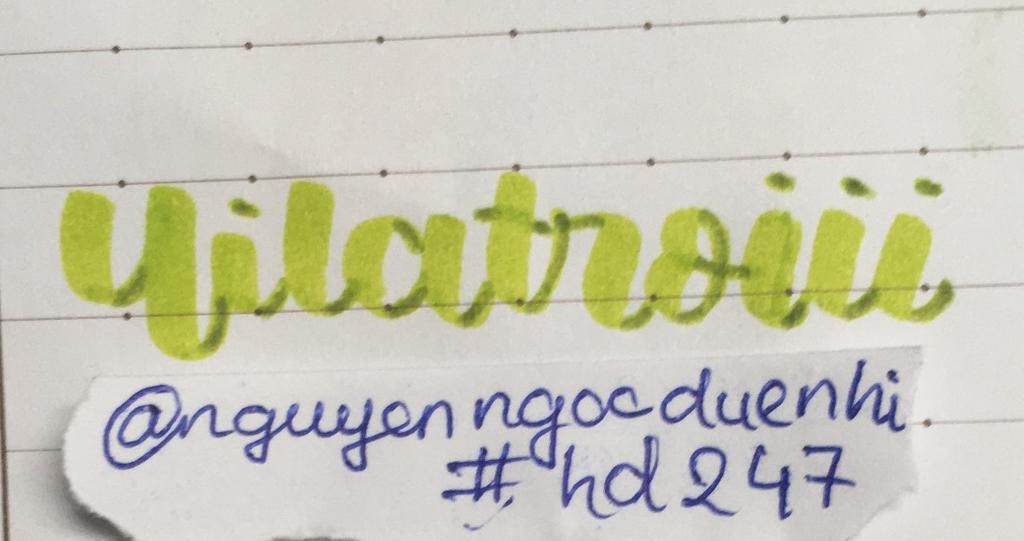 yilatroiii
@nguyenngocduenhi
#hd247